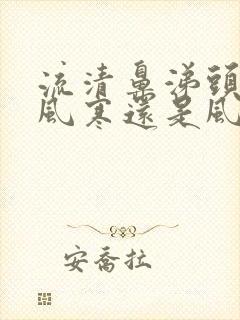 流清鼻涕頭
風寒還是風
安喬拉